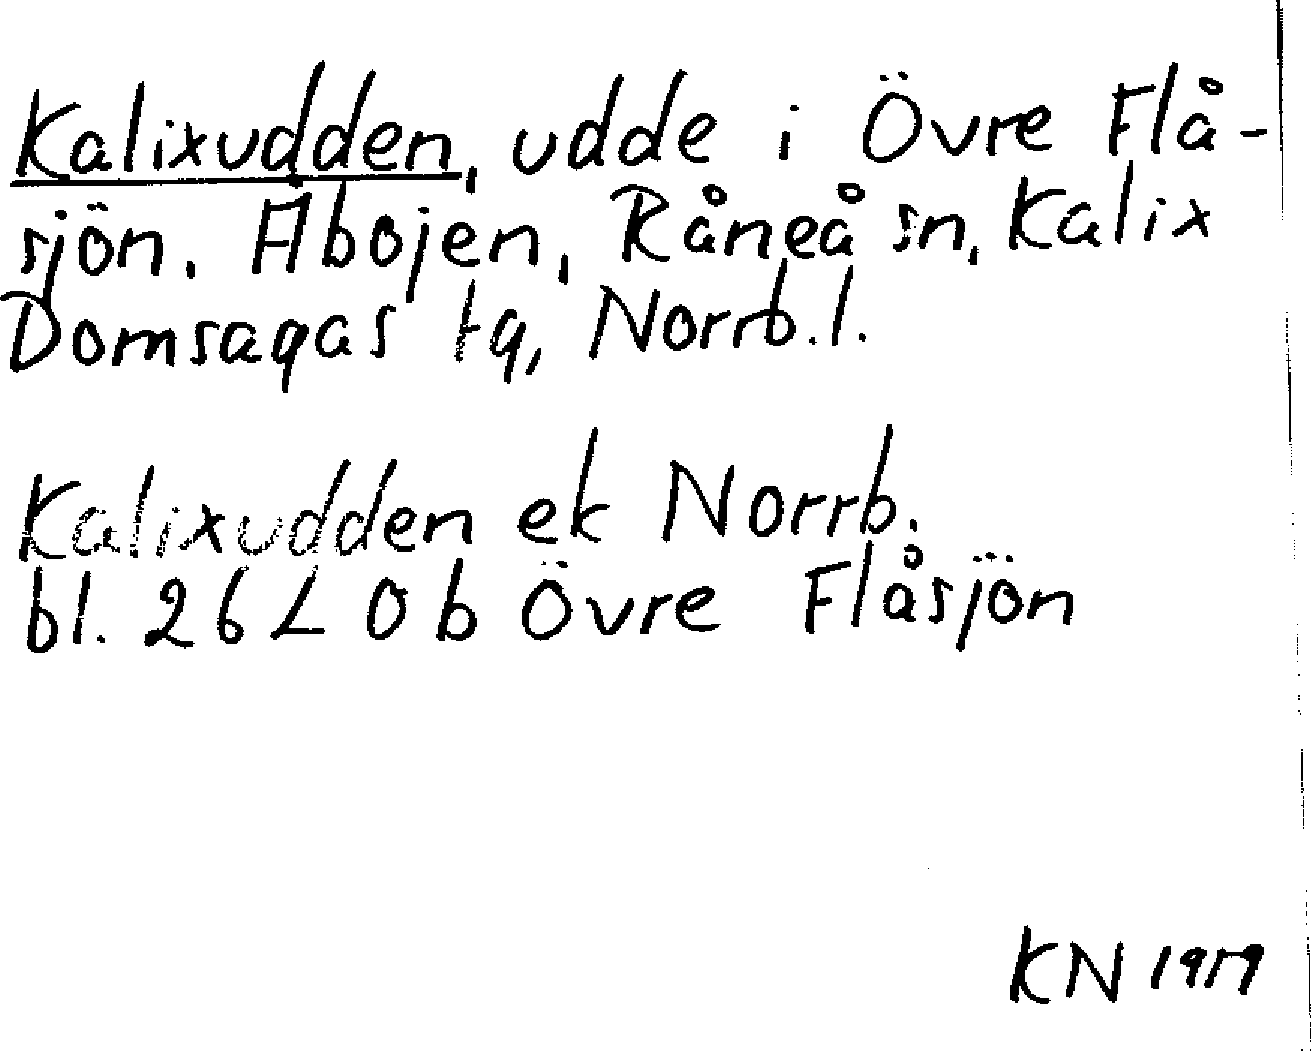 Kalixudden, udde i Övre Flå-
sjön. Abojen, Råneå sn, Kalix
Domsagas tg, Norrb.l.
Kalixudden ek Norrb.
bl. 26 L 0 b Övre Flåsjön
KN 1979